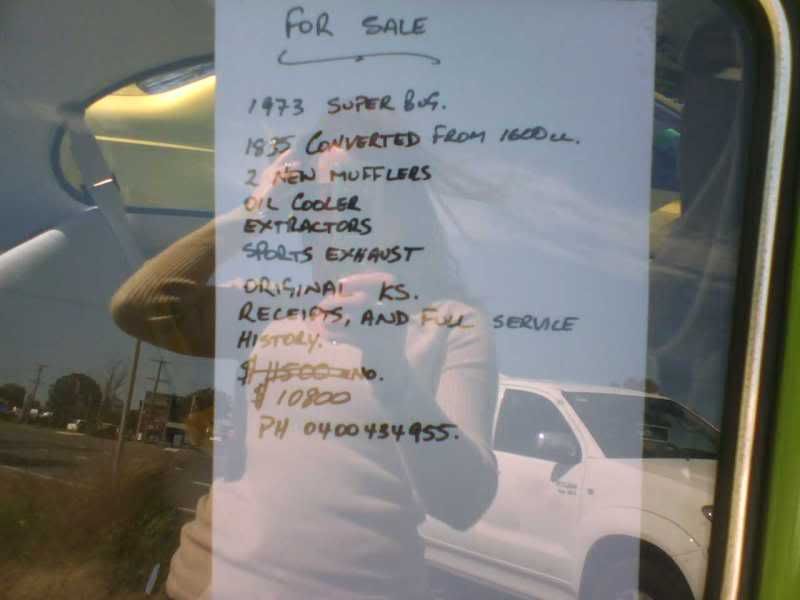 FOR SALE
1973 SUPER BUG.
1835 CONVERTED FROM 1600cc.
2 NEW MUFFLERS
OIL COOLER
EXTRACTORS
SPORTS EXHAUST
ORIGINAL KS.
RECEIPTS, AND FULL SERVICE
HISTORY.
$11500 ONO.
$10800
PH 0400434955.